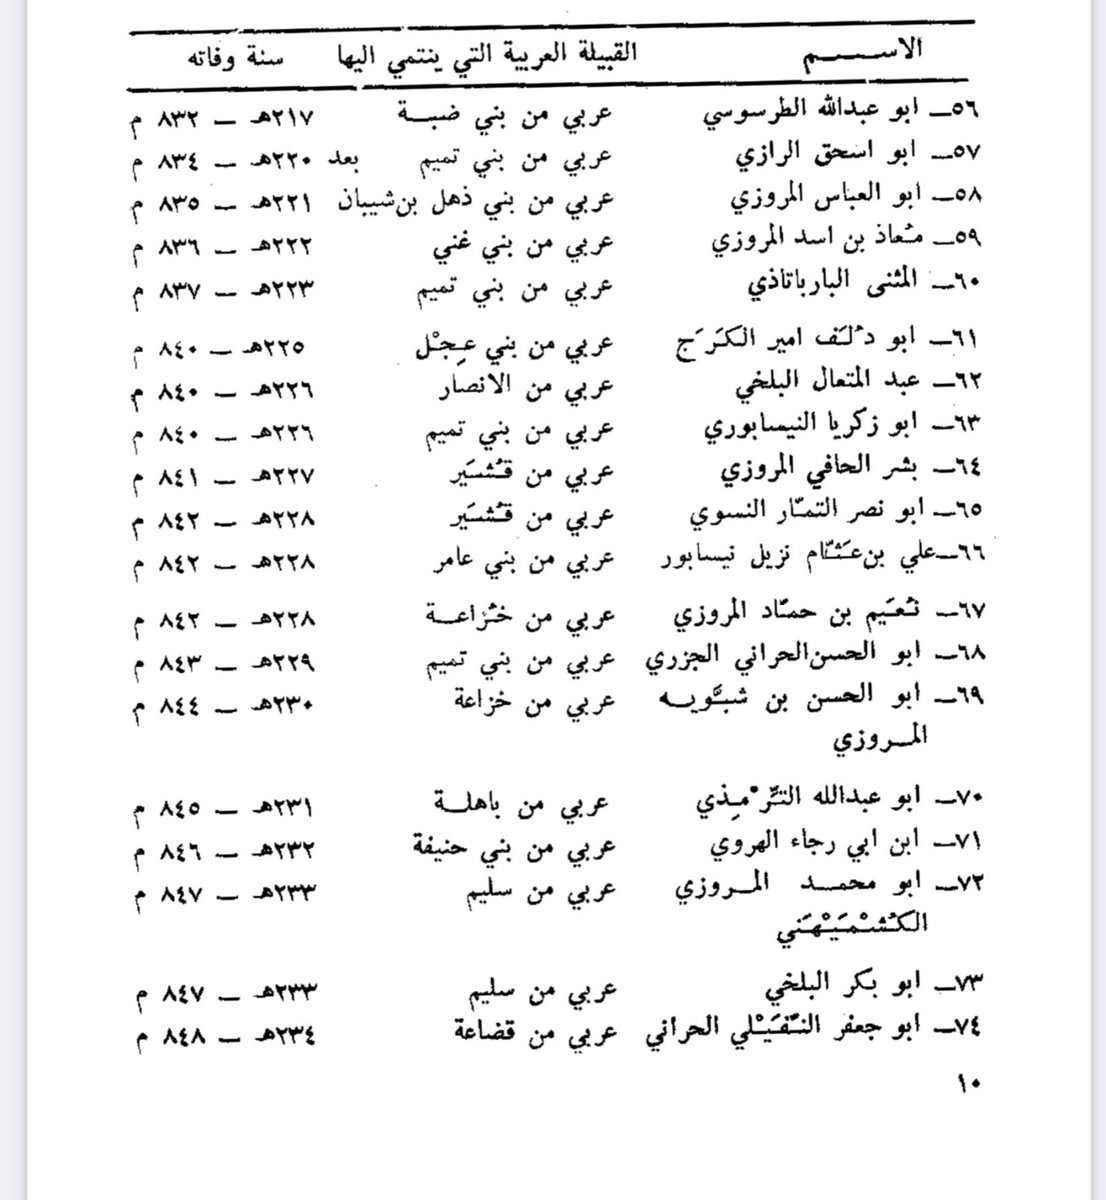 الاســـم القبيلة العربية التي ينتمي اليها سنة وفاته
٥٦ــ ابو عبدالله الطرسوسي عربي من بني ضبـــة ٢١٧هـ ــ ٨٣٢ م
٥٧ــ ابو اسحق الرازي عربي من بني تميم بعد ٢٢٠هـ ــ ٨٣٤ م
٥٨ــ ابو العباس المروزي عربي من بني ذهل بن شيبان ٢٢١هـ ــ ٨٣٥ م
٥٩ــ مُعاذ بن اسد المروزي عربي من بني غني ٢٢٢هـ ــ ٨٣٦ م
٦٠ــ المثنى البارباتاذي عربي من بني تميم ٢٢٣هـ ــ ٨٣٧ م
٦١ــ ابو دُلَف امير الكَرَج عربي من بني عِجْل ٢٢٥هـ ــ ٨٤٠ م
٦٢ــ عبد المتعال البلخي عربي من الانصار ٢٢٦هـ ــ ٨٤٠ م
٦٣ــ ابو زكريا النيسابوري عربي من بني تميم ٢٢٦هـ ــ ٨٤٠ م
٦٤ــ بشر الحافي المروزي عربي من قُشَير ٢٢٧هـ ــ ٨٤١ م
٦٥ــ ابو نصر التمّار النسوي عربي من قُشَير ٢٢٨هـ ــ ٨٤٢ م
٦٦ــ علي بن عَثّام نزيل نيسابور عربي من بني عامر ٢٢٨هـ ــ ٨٤٢ م
٦٧ــ نُعَيم بن حمّاد المروزي عربي من خُزاعـــة ٢٢٨هـ ــ ٨٤٢ م
٦٨ــ ابو الحسن الحراني الجزري عربي من بني تميم ٢٢٩هـ ــ ٨٤٣ م
٦٩ــ ابو الحسن بن شبّويـــه عربي من خزاعة ٢٣٠هـ ــ ٨٤٤ م
المـــروزي
٧٠ــ ابو عبدالله التِّرْمِذي عربي من باهلـــة ٢٣١هـ ــ ٨٤٥ م
٧١ــ ابن ابي رجاء الهروي عربي من بني حنيفة ٢٣٢هـ ــ ٨٤٦ م
٧٢ــ ابو محمـــد المـــروزي عربي من سليم ٢٣٣هـ ــ ٨٤٧ م
الكُشْمَيْهَني
٧٣ــ ابو بكر البلخي عربي من سليم ٢٣٣هـ ــ ٨٤٧ م
٧٤ــ ابو جعفر النُّفَيْلي الحراني عربي من قضاعة ٢٣٤هـ ــ ٨٤٨ م
١٠